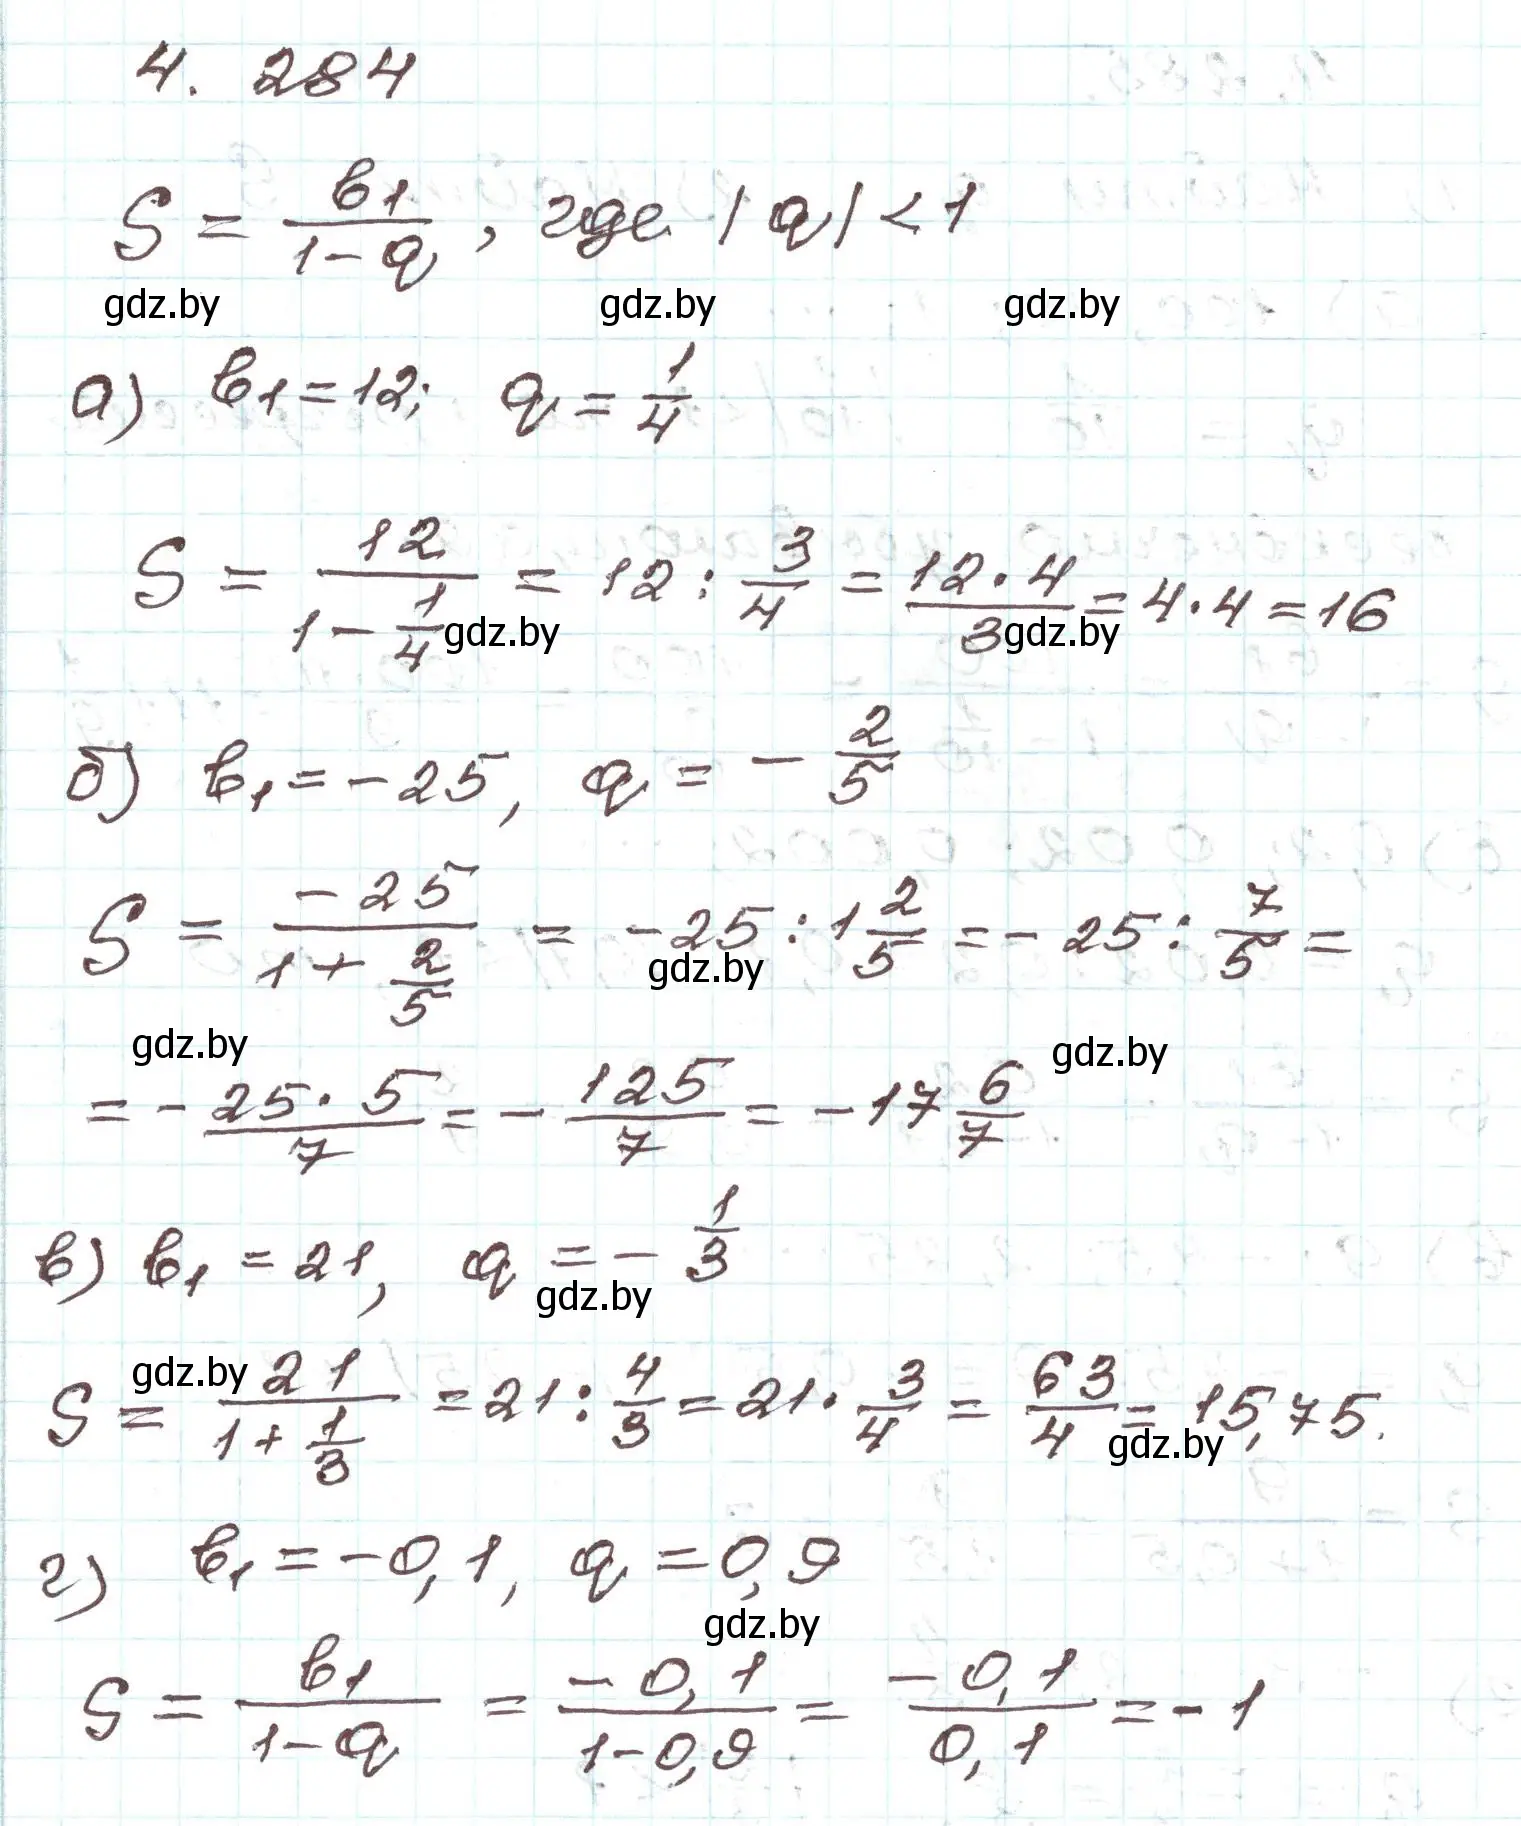 4. 284
S = b₁/(1-q), где |q| < 1
gdz.by gdz.by gdz.by
а) b₁ = 12; q = 1/4
S = 12/(1 - 1/4) = 12 : 3/4 = (12·4)/3 = 4·4 = 16
gdz.by gdz.by
б) b₁ = -25, q = - 2/5
S = -25/(1 + 2/5) = -25 : 1 2/5 = - 25 : 7/5 =
gdz.by
gdz.by gdz.by
= - (25·5)/7 = - 125/7 = - 17 6/7
в) b₁ = 21, q = - 1/3
gdz.by
gdz.by
S = 21/(1 + 1/3) = 21 : 4/3 = 21 · 3/4 = 63/4 = 15,75.
gdz.by
г) b₁ = -0,1, q = 0,9
gdz.by
S = b₁/(1-q) = -0,1/(1-0,9) = -0,1/0,1 = - 1